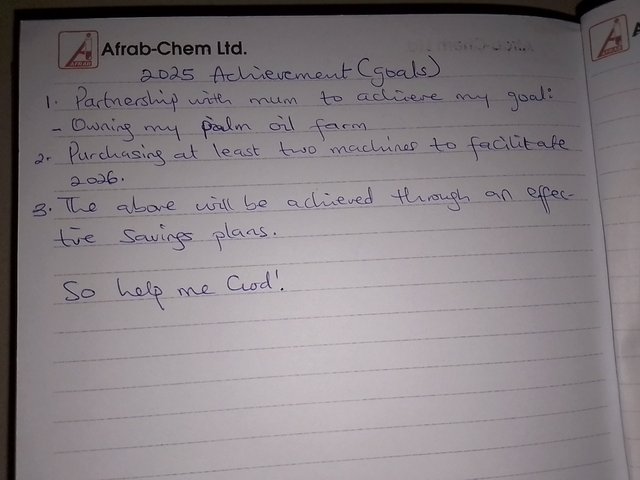 Afrab-Chem Ltd.
AFRAB
2025 Achievement (goals)
1. Partnership with mum to achieve my goal:
- Owning my palm oil farm
2. Purchasing at least two machines to facilitate
2026.
3. The above will be achieved through an effec-
tive savings plans.
So help me God!